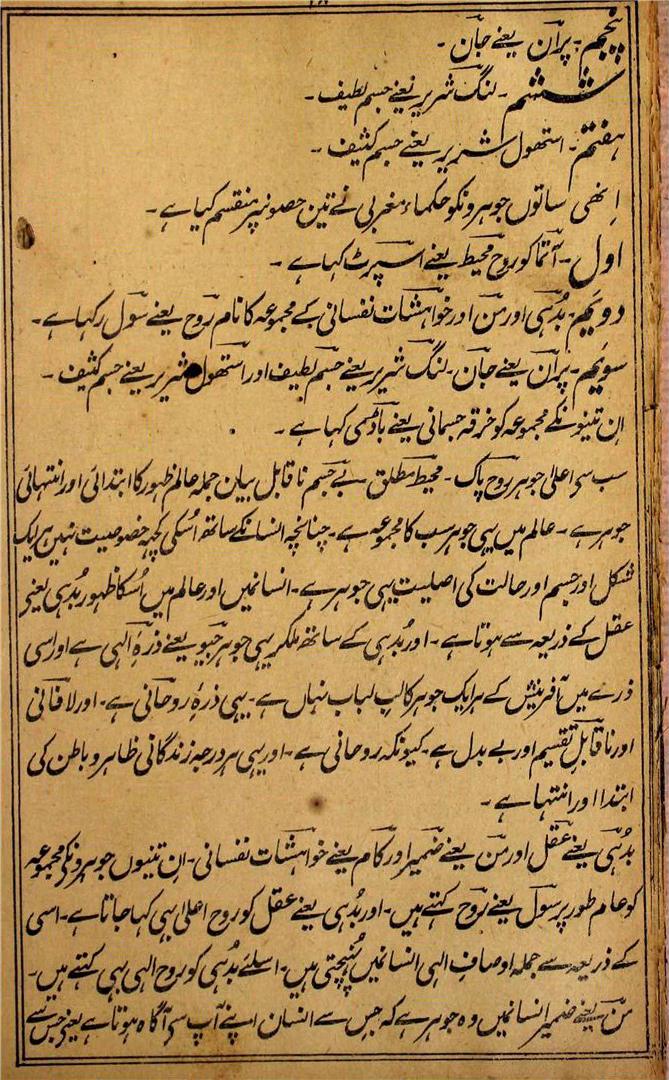 پنجم۔ پران یعنے جان۔
ششم۔ لنگ شریر یعنے جسم لطیف۔
ہفتم۔ استھول شریر یعنے جسم کثیف۔
اِنھی ساتوں جوہرونکو حکماء مغربی نے تین حصونپر منقسم کیا ہے۔
اول۔ آتما کو روح محیط یعنے اسپرٹ کہا ہے۔
دویم۔ بُدّہی اور من اور خواہشات نفسانی کے مجموعہ کا نام روح یعنے سول رکہا ہے۔
سویم۔ پران یعنے جان۔ لنگ شریر یعنے جسم لطیف اور استھول شریر یعنے جسم کثیف۔
ان تینونکے مجموعہ کو خرقہ جسمانی یعنے باڈی کہا ہے۔
سب سی اعلیٰ جوہر روح پاک۔ محیط مطلق بے جسم ناقابل بیان جملہ عالم ظہور کا ابتدائی اور انتہائی
جوہر ہے۔ عالم میں یہی جوہر سب کا مجموعہ ہے۔ چنانچہ انسانکے ساتھ اُسکی کچہہ خصوصیت نہین ہر ایک
شکل اور جسم اور حالت کی اصلیت یہی جوہر ہے۔ انسانمیں اور عالم میں اُسکا ظہور بُدہی یعنی
عقل کے ذریعہ سے ہوتا ہے۔ اور بُدہی کے ساتھ ملکر یہی جوہر جیو یعنے ذرہٴ الٰہی ہے اور اسی
ذرے میں آفرینش کے ہر ایک جوہر کا لب لباب نہاں ہے۔ یہی ذرہٴ روحانی ہے۔ اور لافانی
اور ناقابل تقسیم اور بے بدل ہے۔ کیونکہ روحانی ہے۔ اور یہی ہر درجہ زندگانی ظاہر و باطن کی
ابتدا اور انتہا ہے۔
بُدہی یعنے عقل اور من یعنے ضمیر اور کام یعنے خواہشات نفسانی۔ ان تینوں جوہرونکی مجموعہ
کو عام طور پر سول یعنے روح کہتے ہیں۔ اور بُدہی یعنے عقل کو روح اعلیٰ بہی کہا جاتا ہے۔ اسی
کے ذریعہ سے جملہ اوصاف الٰہی انسانمیں پُہنچتی ہیں۔ اسلئے بُدہی کو روح الٰہی بہی کہتے ہیں۔
من یعنے ضمیر انسانمیں وہ جوہر ہے کہ جس سے انسان اپنے آپ سی آگاہ ہوتا ہے یعنی جس سے